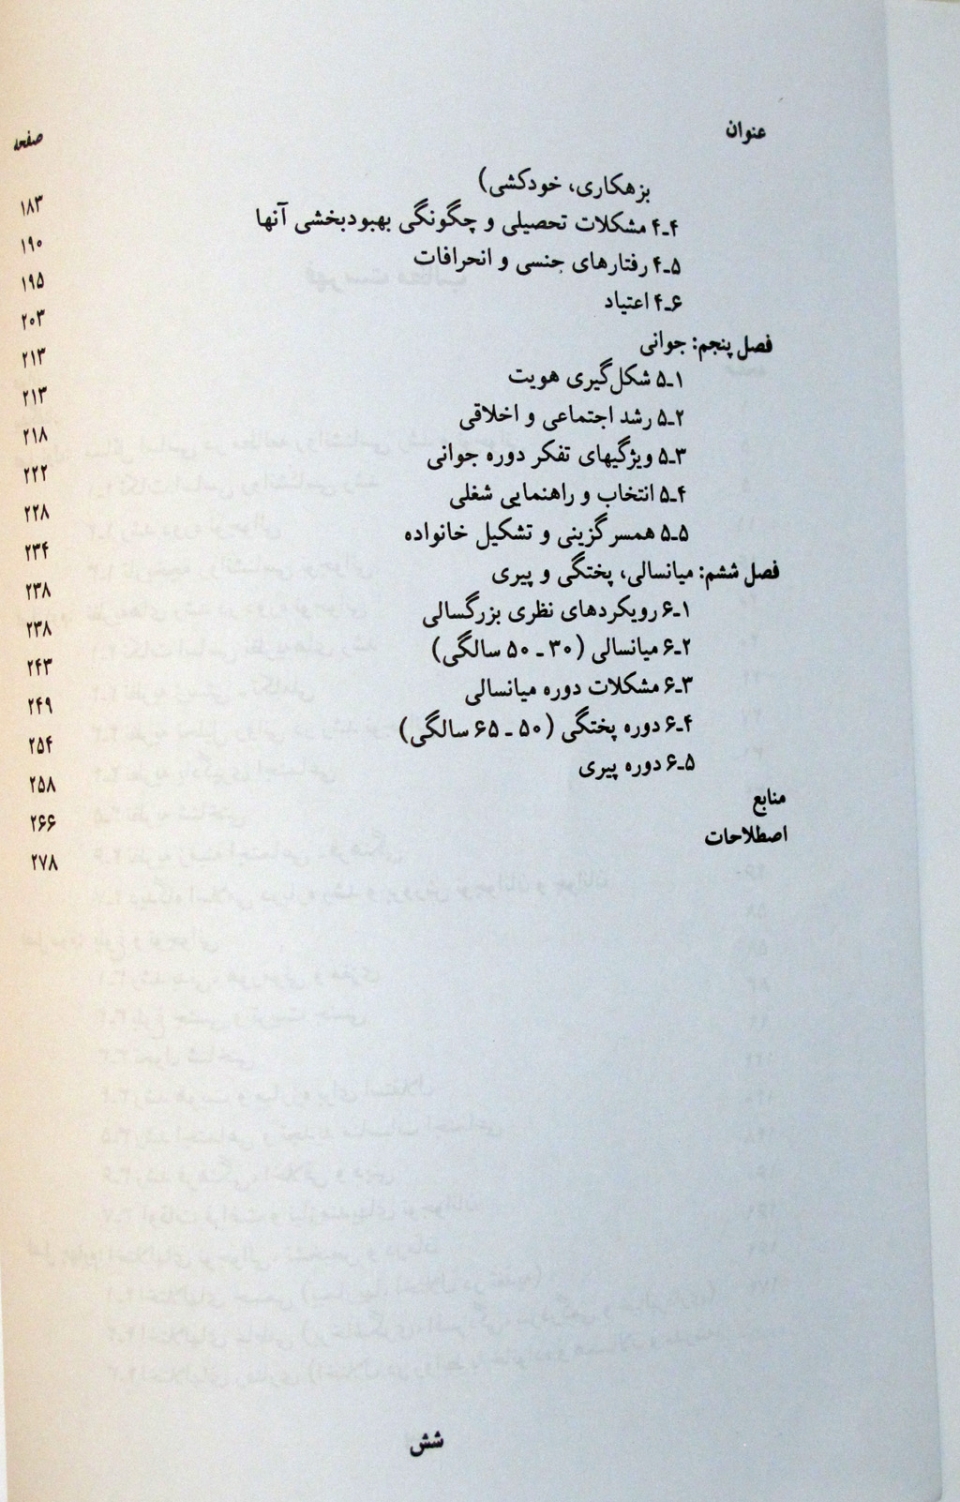 عنوان صفحه
بزهکاری، خودکشی) ۱۸۳
۴ـ۴ مشکلات تحصیلی و چگونگی بهبودبخشی آنها ۱۹۰
۴ـ۵ رفتارهای جنسی و انحرافات ۱۹۵
۴ـ۶ اعتیاد ۲۰۳
فصل پنجم: جوانی ۲۱۳
۵ـ۱ شکل‌گیری هویت ۲۱۳
۵ـ۲ رشد اجتماعی و اخلاقی ۲۱۸
۵ـ۳ ویژگیهای تفکر دوره جوانی ۲۲۲
۵ـ۴ انتخاب و راهنمایی شغلی ۲۲۸
۵ـ۵ همسرگزینی و تشکیل خانواده ۲۳۴
فصل ششم: میانسالی، پختگی و پیری ۲۳۸
۶ـ۱ رویکردهای نظری بزرگسالی ۲۳۸
۶ـ۲ میانسالی (۳۰ ـ ۵۰ سالگی) ۲۴۳
۶ـ۳ مشکلات دوره میانسالی ۲۴۹
۶ـ۴ دوره پختگی (۵۰ ـ ۶۵ سالگی) ۲۵۴
۶ـ۵ دوره پیری ۲۵۸
منابع ۲۶۶
اصطلاحات ۲۷۸
شش